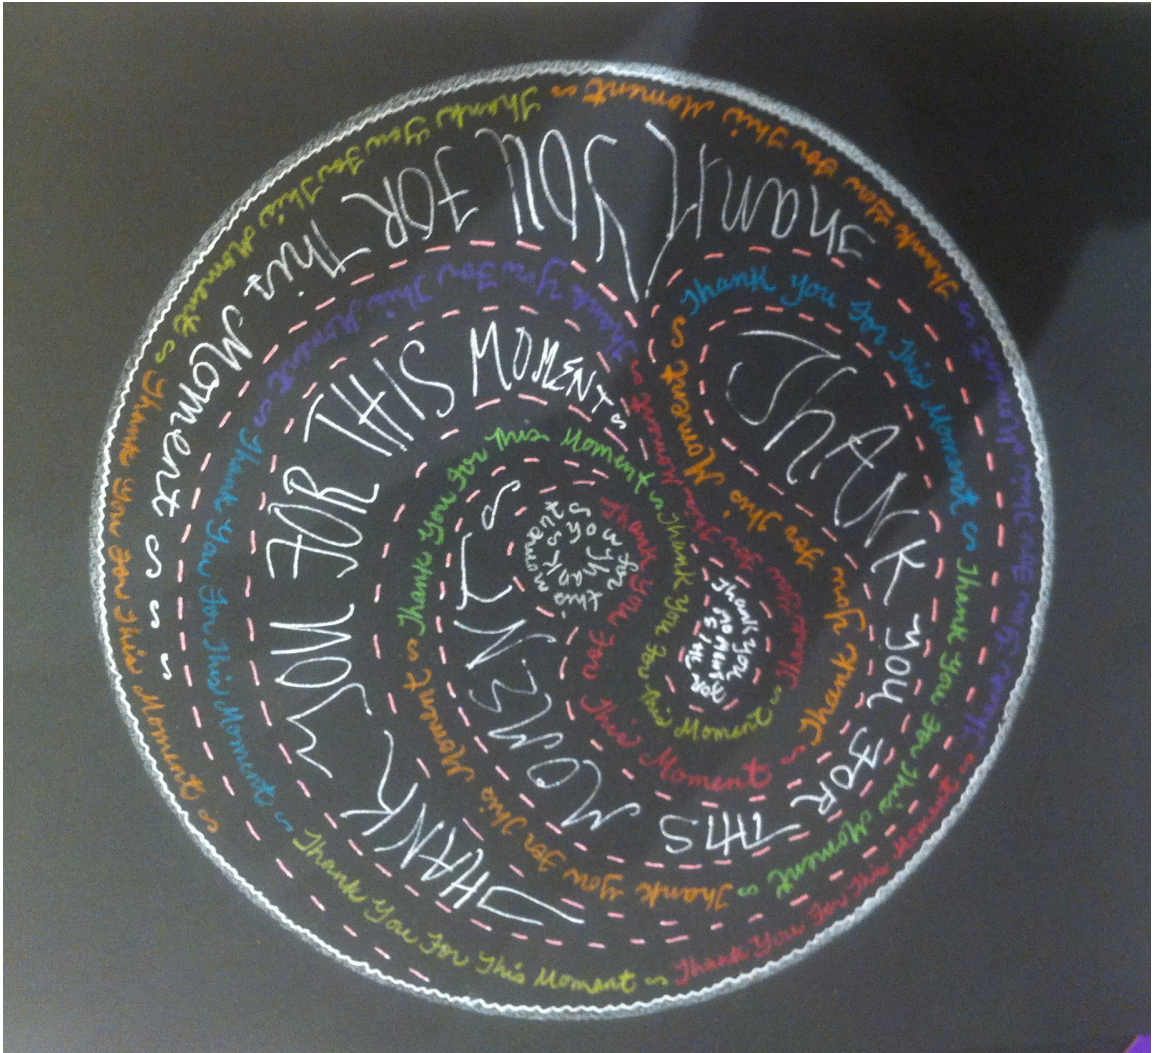 Thank You For This Moment ∽ Thank You For This Moment ∽ Thank You For This Moment ∽ Thank You For This Moment ∽
Thank You For This Moment ∽
Thank You For This Moment ∽
Thank You For This Moment ∽ ∽ ∽ ∽
Thank You For This Moment ∽ Thank You For This Moment ∽
Thank You For This Moment ∽ Thank You For This Moment ∽ Thank You For This Moment ∽
THANK YOU FOR THIS MOMENT ∽
ThANK YOU FOR THIS MOMENT ∽
Thank You For This Moment ∽ Thank You For This Moment ∽
Thank You For This Moment ∽ Thank You For This Moment ∽
Thank You For This Moment ∽
Thank You For This Moment ∽
Thank you for this moment
Thank you for
moment